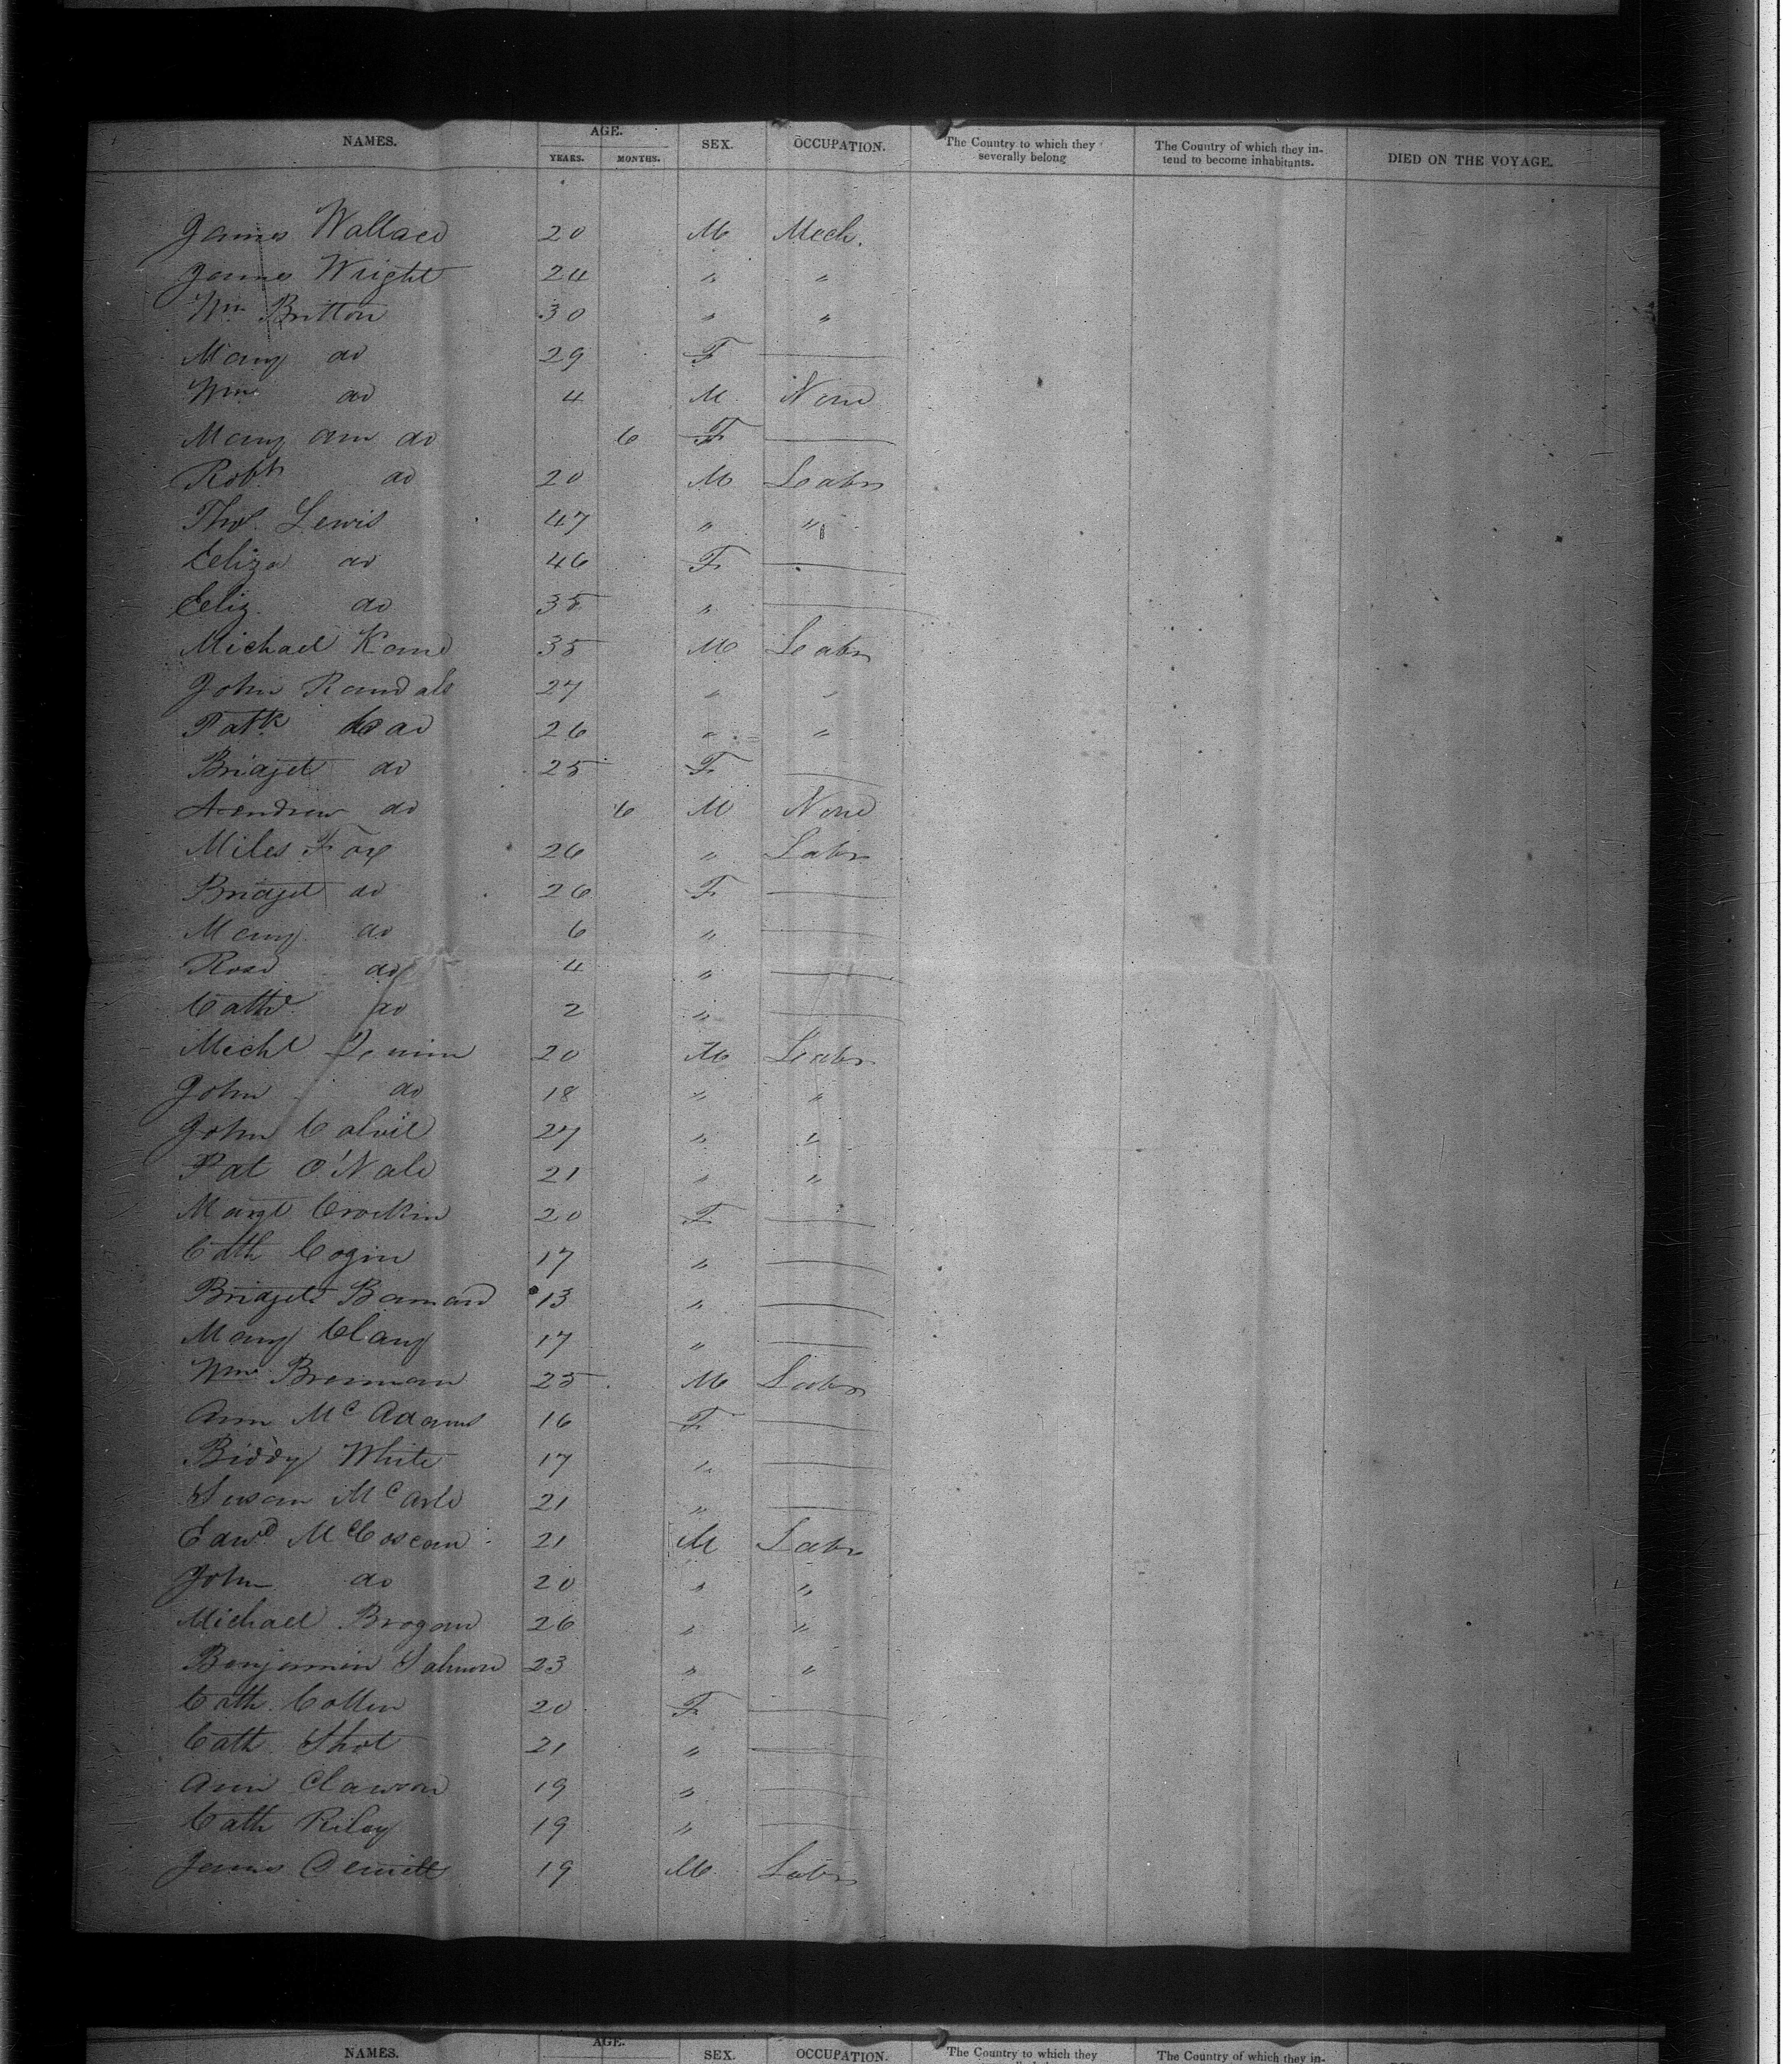 NAMES. AGE. YEARS. MONTHS. SEX. OCCUPATION. The Country to which they severally belong The Country of which they intend to become inhabitants. DIED ON THE VOYAGE.
James Wallace 20 M Mech.
James Wright 24 " "
Wm Britton 30 " "
Mary do 29 F
Wm do 4 M None
Mary Ann do 6 F
Robt do 20 M Labr
Thos. Lewis 47 " "
Eliza do 46 F
Eliz. do 35 "
Michael Kane 35 M Labr
John Randals 27 " "
Patk do 26 " "
Bridget do 25 F
Andrew do 6 M None
Miles Fox 26 " Labr
Bridget do 26 F
Mary do 6 "
Rose do 4 "
Cathe do 2 "
Michl 20 M Labr
John do 18 " "
John Calvil 27 " "
Pat O'Nale 21 " "
Margt 20 F
Cath Cogin 17 "
Bridget 13 "
Mary Clary 17 "
Wm Brennan 25 M Labr
Ann McAdams 16 F
Biddy White 17 "
Susan McArle 21 "
Edwd 21 M Labr
John do 20 " "
Michael Brogan 26 " "
Benjamin Salmon 23 " "
Cath. Collin 20 F
Cath. Shot 21 "
Ann Clawson 19 "
Cath Riley 19 "
James 19 M Labr
NAMES. AGE. SEX. OCCUPATION. The Country to which they The Country of which they in-